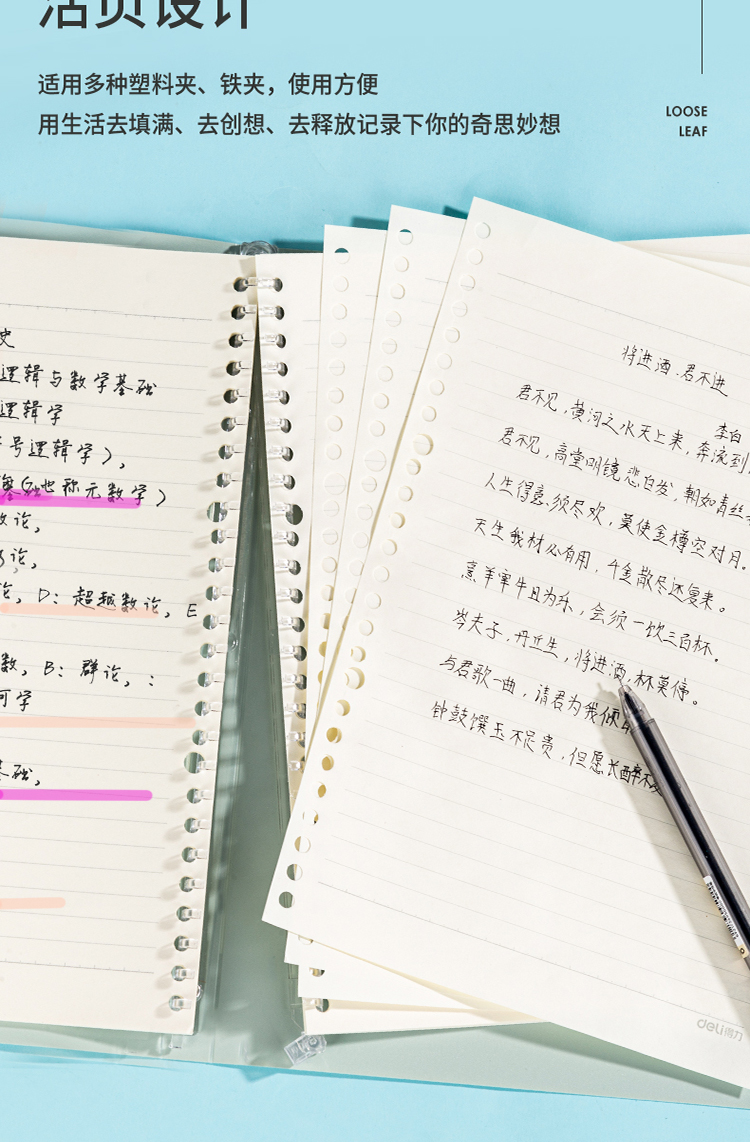 活页设计
适用多种塑料夹、铁夹，使用方便
用生活去填满、去创想、去释放记录下你的奇思妙想
LOOSE
LEAF
史
逻辑与数学基础
逻辑学
号逻辑学），
基础也称元数学）
论，
论，
论，D：超越数论，E
数，B：群论，：
何学
基础，
将进酒·君不进
李白
君不见，黄河之水天上来，奔流到
君不见，高堂明镜悲白发，朝如青丝
人生得意须尽欢，莫使金樽空对月。
天生我材必有用，千金散尽还复来。
烹羊宰牛且为乐，会须一饮三百杯。
岑夫子，丹丘生，将进酒，杯莫停。
与君歌一曲，请君为我倾
钟鼓馔玉不足贵，但愿长醉不
deli得力